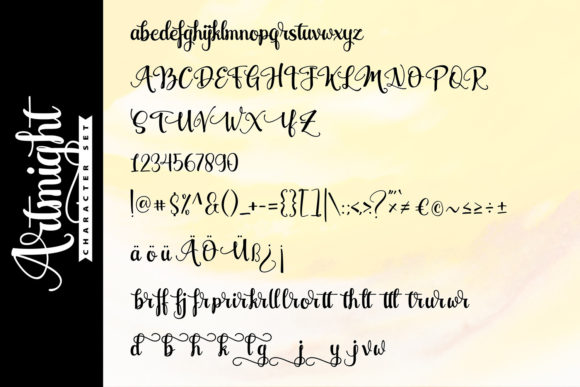 Artmight
CHARACTER SET
abcdefghijklmnopqrstuvwxyz
ABCDEFGHIJKLMNOPQR
STUVWXYZ
1234567890
!@#$%^&()_+-={}[]|\:;<,>.?"'`×≠€©~≤≥÷±
äöüÄÖÜß¿¡
brff fj frprirkrlllrortt thtt ttt trurwr
d b h k lg j y jvw